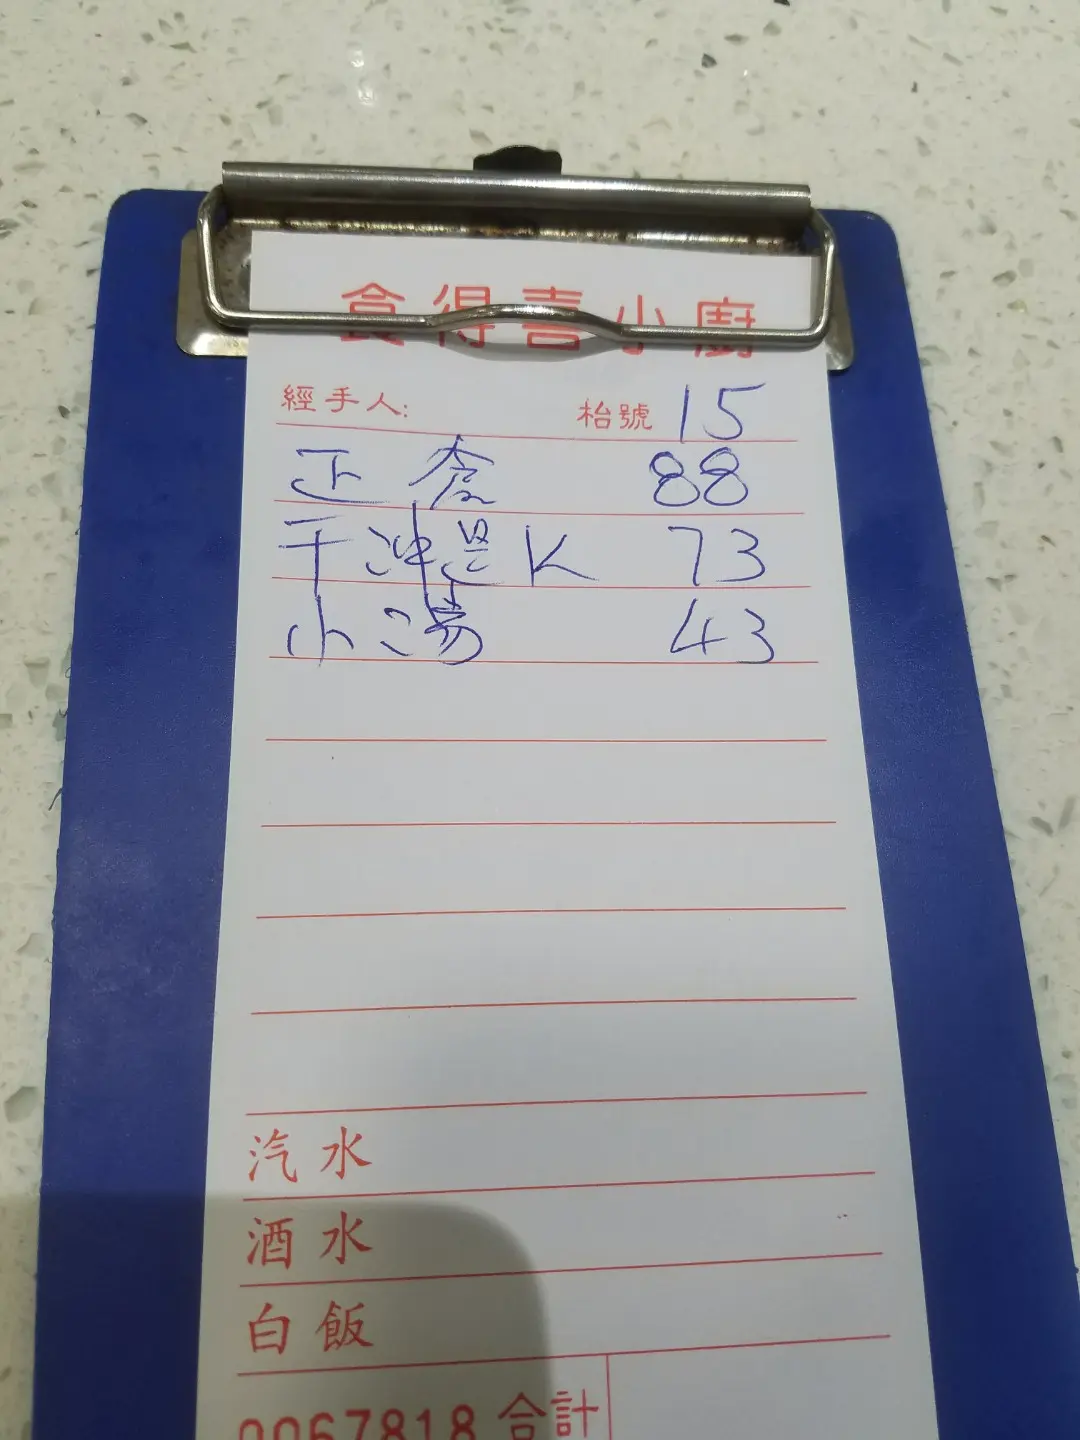 食得喜小廚
經手人: 枱號 15
正 88
干 K 73
小湯 43
汽水
酒水
白飯
0067818 合計